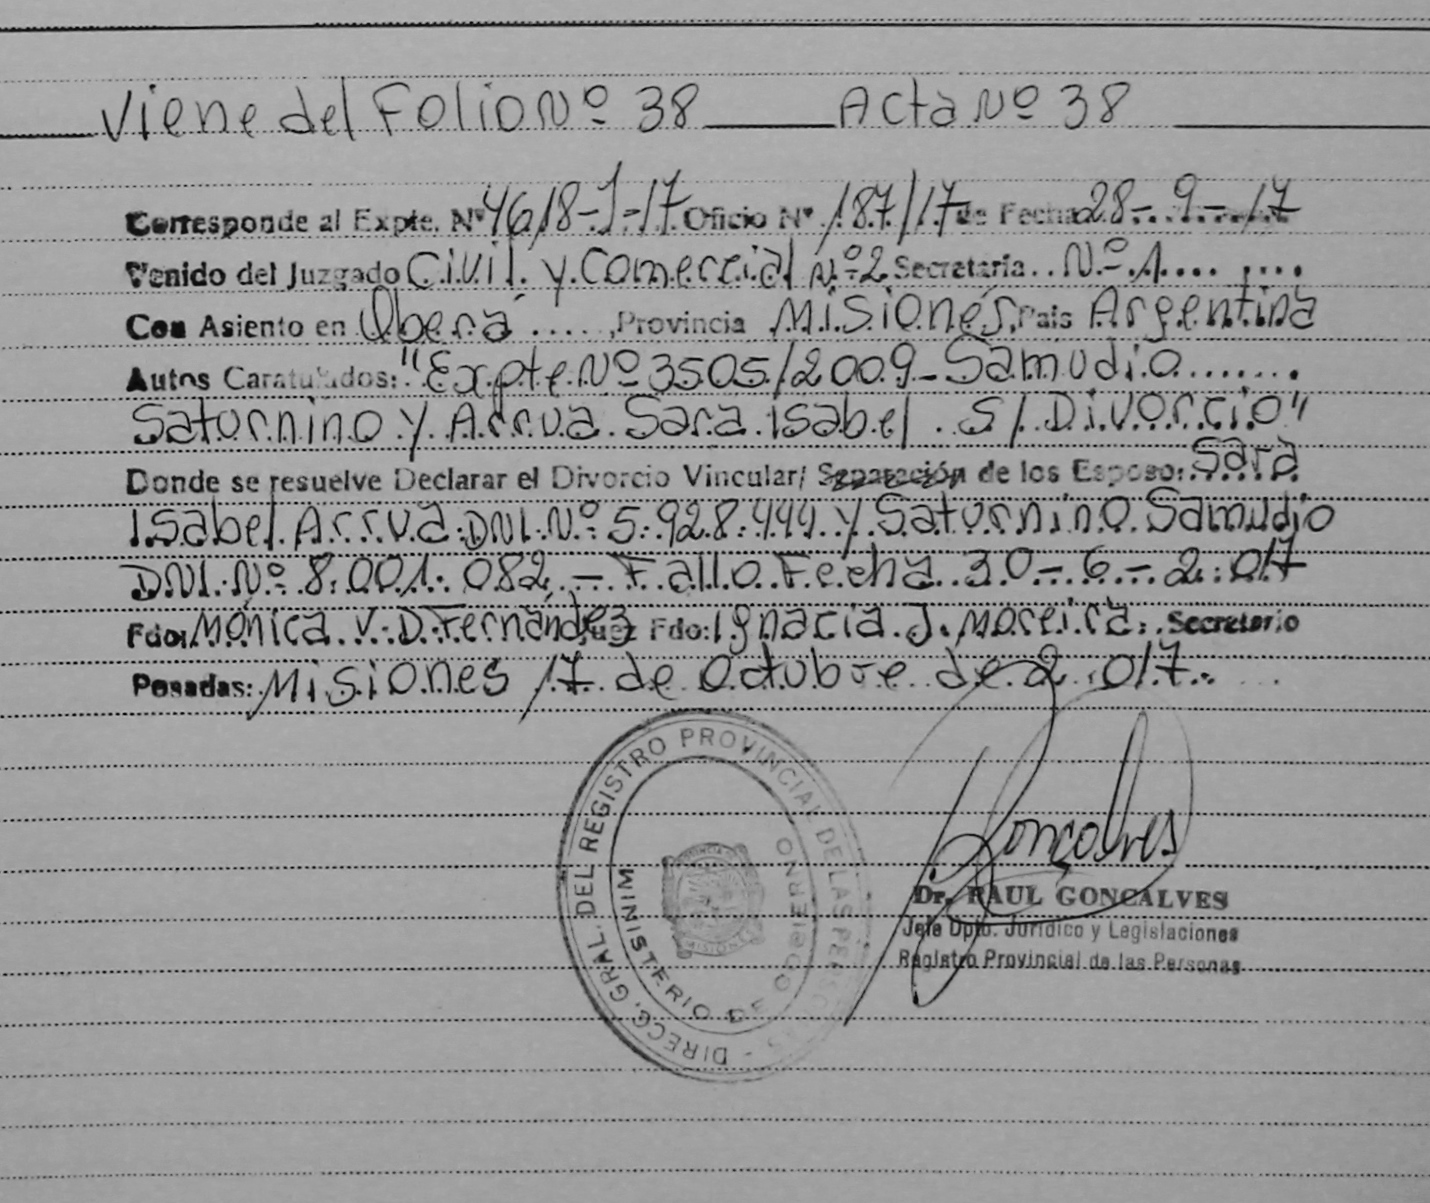 Viene del Folio Nº 38 Acta Nº 38
Corresponde al Expte. Nº 4618-J-17 Oficio Nº 187/17 de Fecha 28-9-17
Venido del Juzgado Civil y Comercial Nº 2 Secretaría Nº 1
Con Asiento en Oberá, Provincia Misiones, Pais Argentina
Autos Caratulados: "Expte Nº 3505/2009 - Samudio
Saturnino y Arrua Sara Isabel S/ Divorcio"
Donde se resuelve Declarar el Divorcio Vincular/ Separación de los Esposo: Sara
Isabel Arrua DNI Nº 5.928.444 y Saturnino Samudio
DNI Nº 8.001.082 - Fallo Fecha 30-6-2.017
Fdo: Mónica V. D. Fernández Juez Fdo: Ignacia J. Moreira. Secretario
Posadas: Misiones 17 de Octubre de 2.017.
DIRECC. GRAL. DEL REGISTRO PROVINCIAL DE LAS PERSONAS -
MINISTERIO DE GOBIERNO
PROVINCIA DE
MISIONES
Goncalves
Dr. RAUL GONCALVES
Jefe Dpto. Jurídico y Legislaciones
Registro Provincial de las Personas